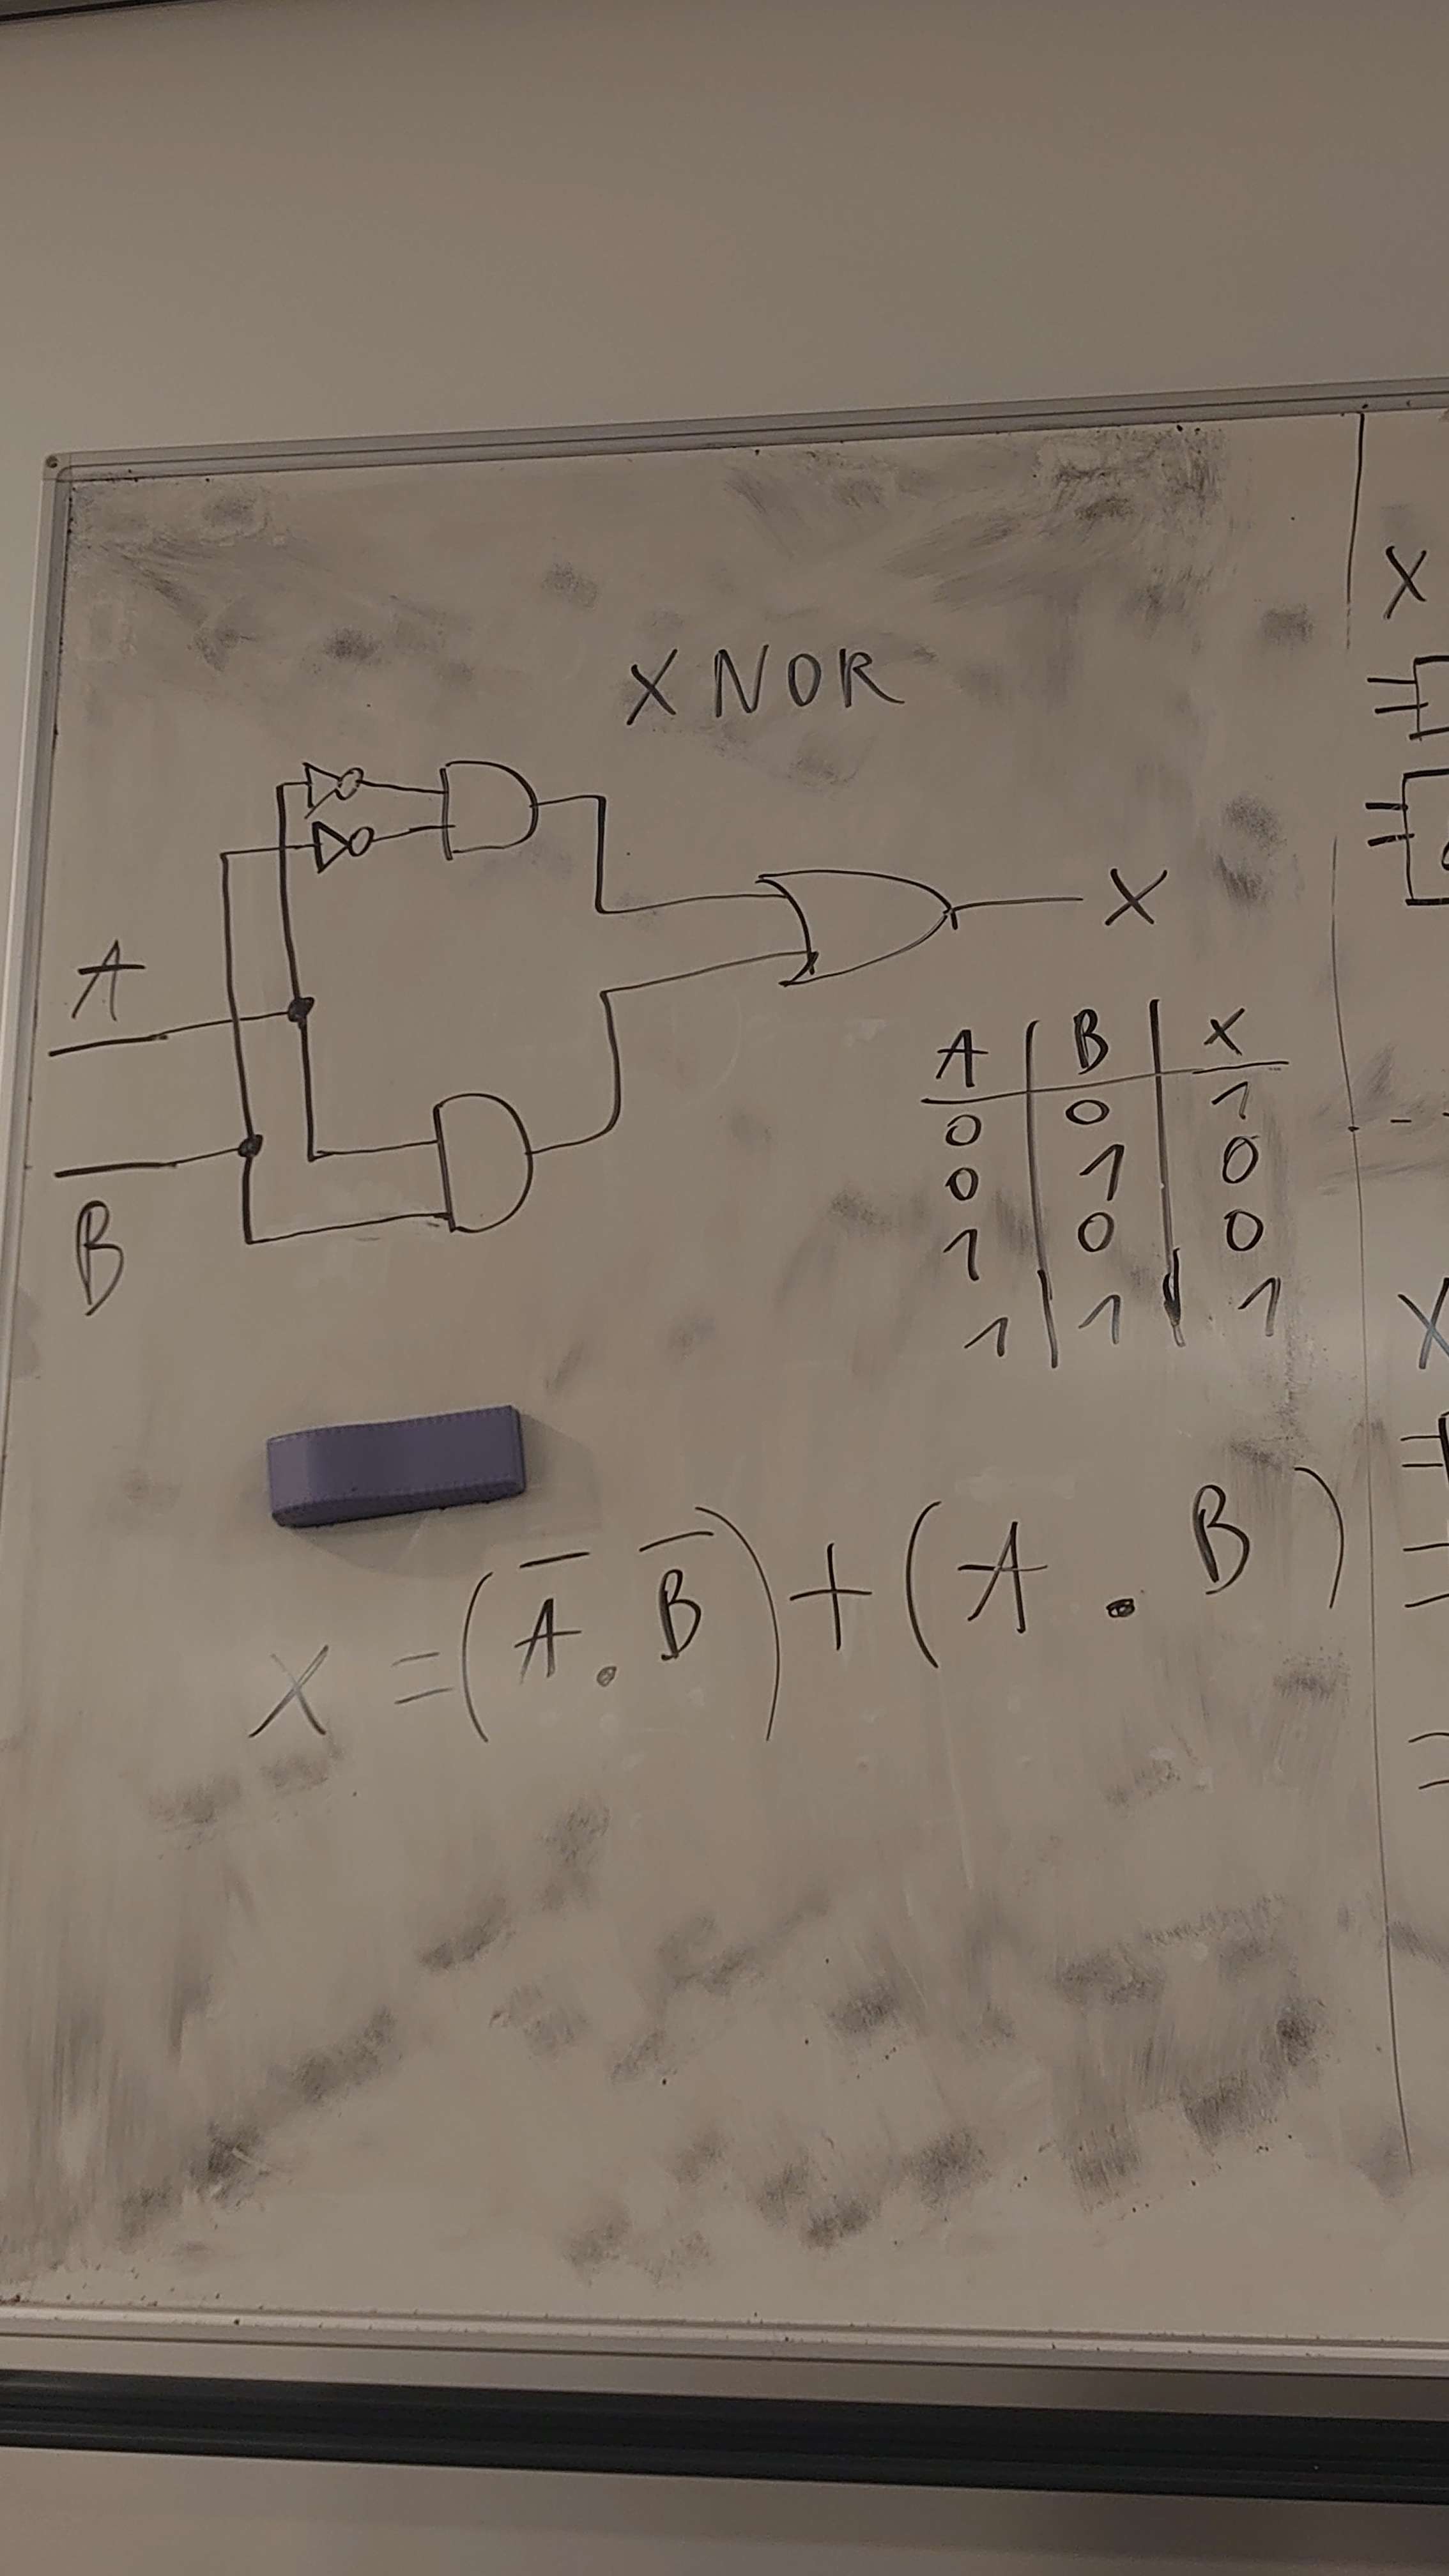 XNOR
A
B
X
A | B | X
0 | 0 | 1
0 | 1 | 0
1 | 0 | 0
1 | 1 | 1
X = (A̅ . B̅) + (A . B)
X
X